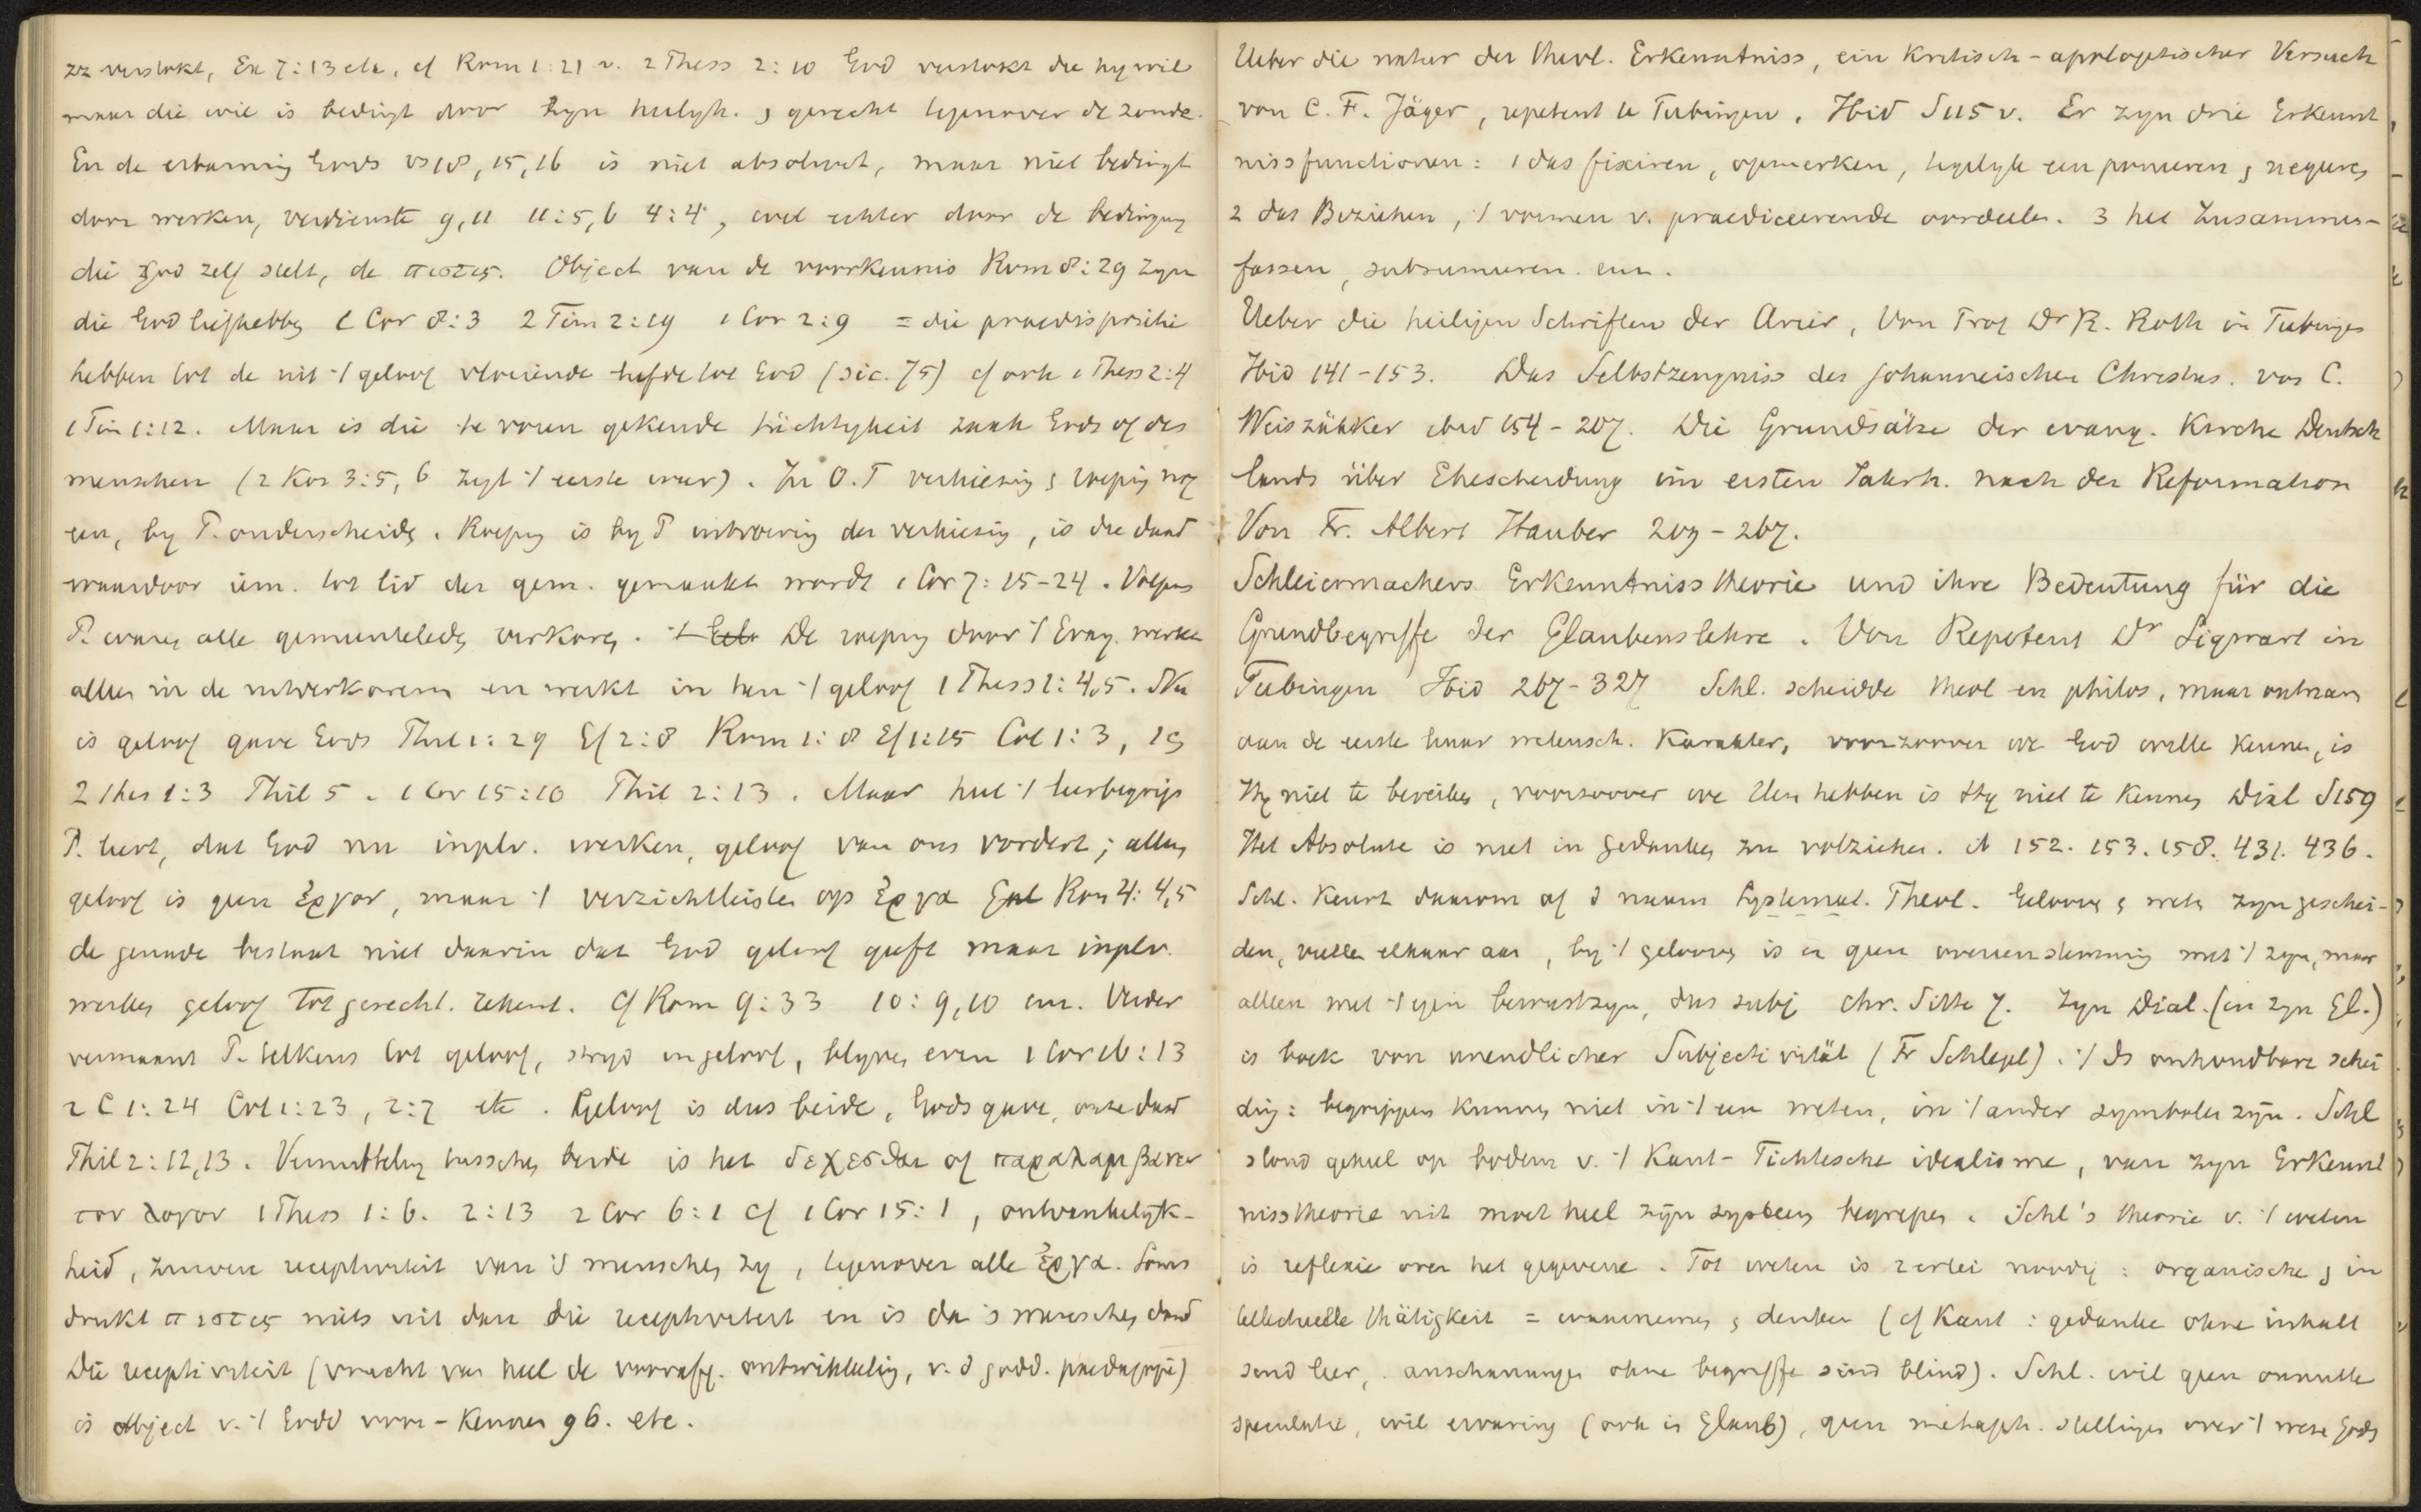 zz verstokt, Ex 7:13 etc. cf Rom 1:21 v. 2 Thess 2:10 God verstokt die hy wil
maar die wil is bedingt door zyn heiligh. & gerecht tegenover de zonde.
En de erbarming Gods vs 18, 15, 16 is niet absoluut, maar niet bedingt
door werken, verdienste 9,11 11:5,6 4:4, wel echter door de bedinging
die God zelf stelt, de πιστις. Object van de voorkennis Rom 8:29 zyn
die God liefhebben 1 Cor 8:3 2 Tim 2:19 1 Cor 2:9 = die praedispositie
hebben tot de uit 't geloof vloeiende liefde tot God (sic. 75) cf ook 1 Thess 2:4
1 Tim 1:12. Maar is die te voren gekende tüchtigheit zaak Gods of des
menschen (2 Kor 3:5, 6 zegt 't eerste waar). In O.T verkiezing & roeping nog
een, by P. onderscheiden. Roeping is by P uitvoering der verkiezing, is die daad
waardoor iem. tot lid der gem. gemaakt wordt 1 Cor 7:15-24. Volgens
P. waren alle gemeenteleden verkoren. De roeping door 't Evang. werkt
alles in de uitverkorenen en werkt in hen 't geloof 1 Thess 1:4,5. Nu
is geloof gave Gods Phil 1:29 Ef 2:8 Rom 1:8 Ef 1:15 Col 1:3,
2 Thes 1:3 Phil 5. 1 Cor 15:10 Phil 2:13. Maar heel 't leerbegrip
P. leert, dat God nu inplv. werken, geloof van ons vordert; alleen
geloof is geen ἐργον, maar 't verzichtleisten op ἐργα Rom 4:4,5
de genade bestaat niet daarin dat God geloof geeft maar inplv.
werken geloof tot gerecht. rekent. cf Rom 9:33 10:9,10 enz. Verder
vermaant P. telkens tot geloof, stryd ongeloof, blyven even 1 Cor 16:13
2 C 1:24 Col 1:23, 2:7 etc. Geloof is dus beide, Gods gave, onze daad
Phil 2:12,13. Vermitteling tusschen beide is het δεχεσθαι of παραλαμβανειν
τον λογον 1 Thess 1:6. 2:13 2 Cor 6:1 cf 1 Cor 15:1, ontvankelyk-
heid, zuivere receptiviteit van 's menschen zy, tegenover alle ἐργα. Soms
drukt πιστις niets uit dan die receptiviteit en is dan 's menschen daad
Die receptiviteit (vrucht van heel de voorafg. ontwikkeling, v. d godd. paedagogie)
is object v. 't Godd voor-kennen 96. etc.
Ueber die natur der theol. Erkenntniss, ein kritisch-apologetischer Versuch
von C. F. Jäger, repetent te Tubingen. Ibid S 115 v. Er zyn drie Erkennt
nissfunctionen: 1 das fixiren, opmerken, tegelyk een poneeren & negeeren
2 das Beziehen, 't vormen v. praediceerende oordeelen. 3 het Zusammen-
fassen, subsumeeren enz.
Ueber die heiligen Schriften der Arier, Von Prof Dr R. Roth in Tubingen
Ibid 141-153. Das Selbstzeugniss des johanneischen Christus. von C.
Weiszäkker ibid 154-207. Die Grundsätze der evang. Kirche Deutsch
lands über Ehescheidung im ersten Jahrh. nach der Reformation
Von Fr. Albert Hauber 209-267.
Schleiermachers Erkenntnisstheorie und ihre Bedeutung für die
Grundbegriffe der Glaubenslehre. Von Repetent Dr Sigwart in
Tubingen Ibid 267-327 Schl. scheidde theol en philos, maar ontnam
aan de eerste haar wetensch. Karakter, voorzoover we God willen kennen, is
Hy niet te bereiken, voorzoover we Hem hebben is Hy niet te kennen Dial S 159
Het Absolute is niet in gedanken zu vollziehen. ib 152. 153. 158. 431. 436.
Schl. keurt daarom af d naam Systemat. Theol. Gelooven & weten zyn geschei-
den, vullen elkaar aan, by 't gelooven is er geen overeenstemming met 't zyn, maar
alleen met 't eigen bewustzyn, dus subj chr. Sitte 7. Zyn Dial. (en zyn Gl.)
is boek von unendlicher Subjectivität (Fr Schlegel). 't Is onhoudbare schei
ding: begrippen kunnen niet in 't een weten, in 't ander symbolen zyn. Schl
stond geheel op bodem v. 't Kant-Fichtesche idealisme, van zyn Erkennt
nisstheorie uit moet heel zyn systeem begrepen. Schl's theorie v. 't weten
is reflexie over het gegevene. Tot weten is 2erlei noodig: organische & in
tellectuelle thätigkeit = waarnemen & denken (cf Kant: gedanke ohne inhalt
send leer, anschauungen ohne begriffe sind blind). Schl. wil geen onnutte
speculatie, wil ervaring (ook in Glaub), geen metaph. stellingen over 't wezen Gods